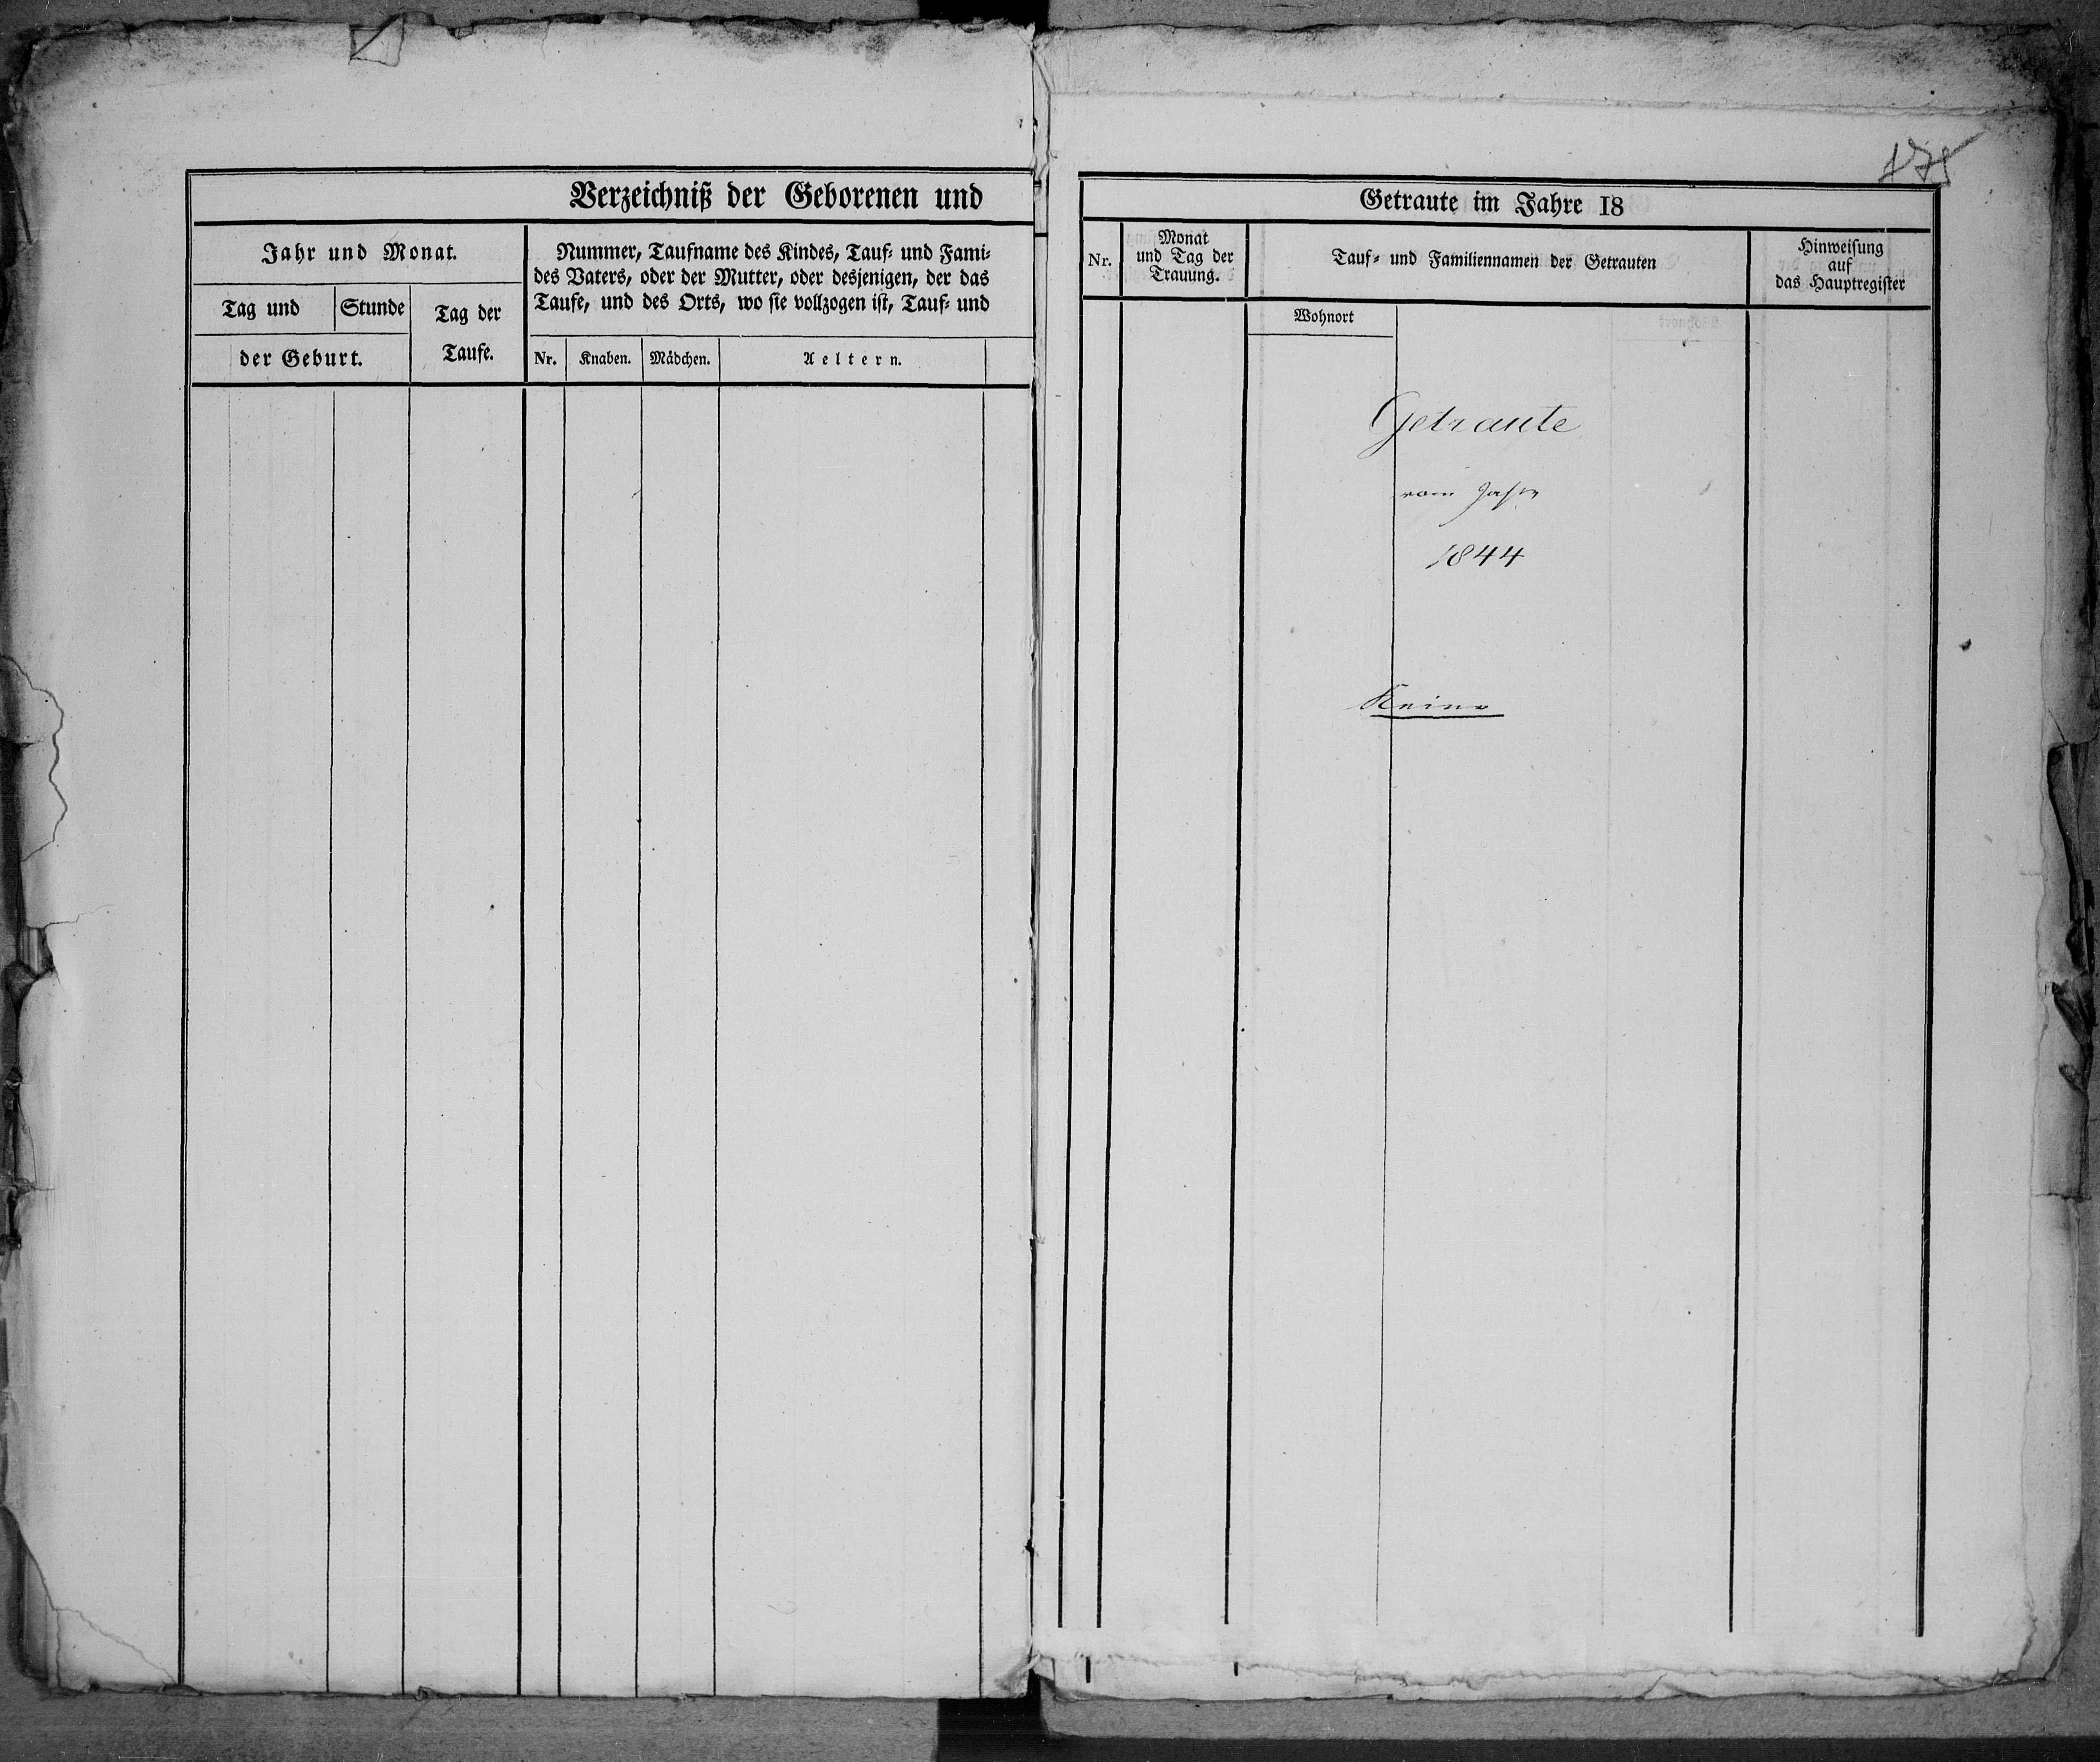 Verzeichniß der Geborenen und
Jahr und Monat.
Tag und
Stunde
der Geburt.
Tag der
Taufe.
Nummer, Taufname des Kindes, Tauf- und Fami-
des Vaters, oder der Mutter, oder desjenigen, der das
Taufe, und des Orts, wo sie vollzogen ist, Tauf- und
Nr.
Knaben.
Mädchen.
Aeltern.
175
Getraute im Jahre 18
Nr.
Monat
und Tag der
Trauung.
Tauf- und Familiennamen der Getrauten
Hinweisung
auf
das Hauptregister
Wohnort
Getraute
vom Jahre
1844
Keine